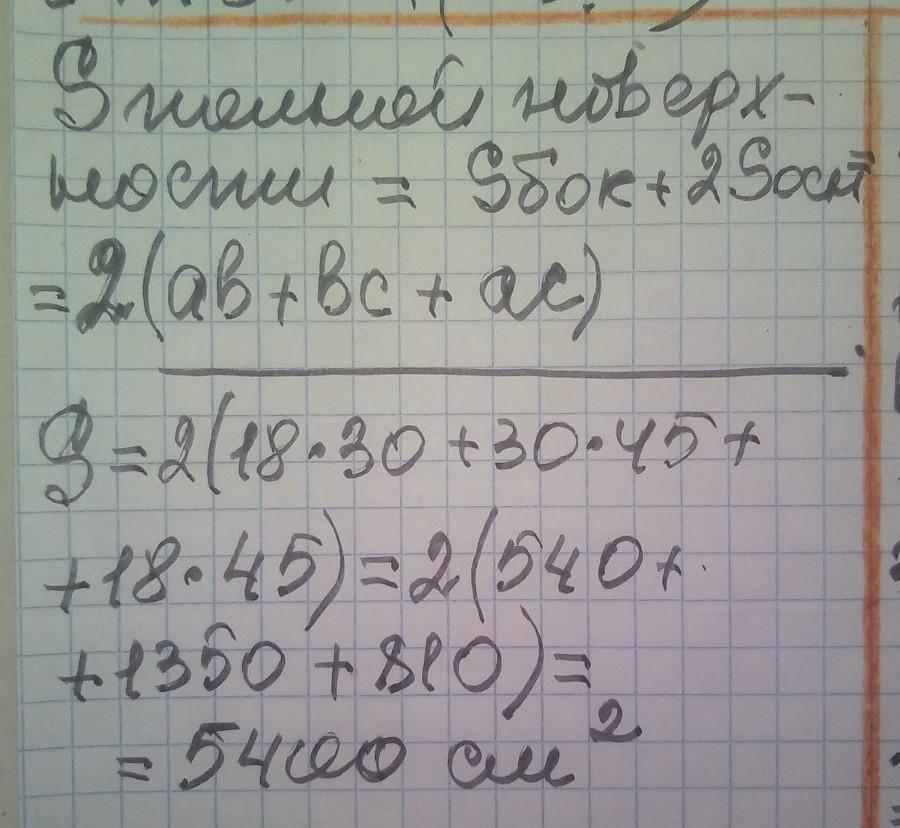 S полной поверх-
ности = Sбок + 2Sосн =
= 2(ab + bc + ac)
S = 2(18·30 + 30·45 +
+ 18·45) = 2(540 +
+ 1350 + 810) =
= 5400 см²